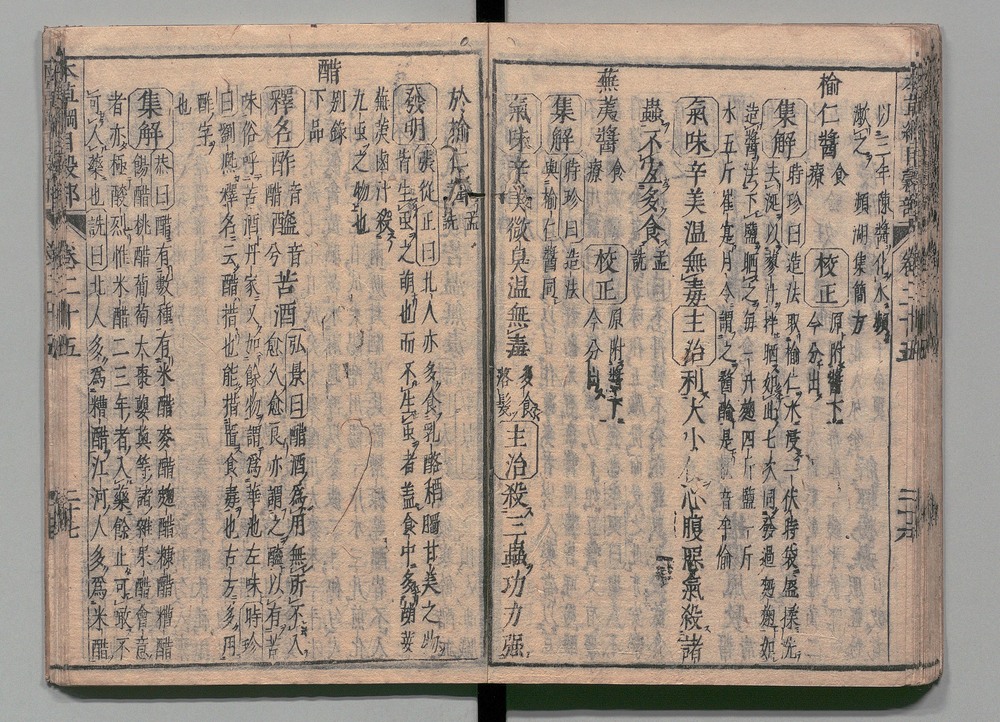 以二三年陳醬化水頻
漱之 瀕湖集簡方
榆仁醬 食療 校正 原附醬下今分出
集解 時珍曰造法取榆仁水浸一伏時袋盛揉洗
去涎以蓼汁拌晒如此七次同發過麪麹如
造醬法下鹽晒之每一升麹四斤鹽一斤
水五斤崔寔月令謂之醬是也音牟偷
氣味辛美溫無毒主治利大小心腹惡氣殺諸
蟲不宜多食 孟詵
蕪荑醬 食療 校正 原附醬下今分出
集解 時珍曰造法與榆仁醬同
氣味辛美微臭溫無毒 多食落髮 主治殺三蟲功力强
於榆仁醬 孟詵
發明 張從正曰北人亦多食乳酪酒脯甘美之物
皆生蟲之萌也而不生蟲者蓋食中多胡荽
蕪荑鹵汁殺
九虫之物也
醋 别錄下品
釋名酢音醯音兮苦酒 弘景曰醋酒為用無所不入
愈久愈良亦謂之醯以有苦
味俗呼苦酒丹家又加餘物謂為華池左味時珍
曰劉熙釋名云醋措也能措置食毒也古方多用
酢字
也
集解 恭曰醋有數種有米醋麥醋麹醋糠醋糟醋
餳醋桃醋葡萄大棗蘡薁等諸雜果醋會意
者亦極酸烈惟米醋二三年者入藥餘止可啖不
可入藥也詵曰北人多為糟醋江河人多為米醋
本草綱目穀部 卷二十五 二十七